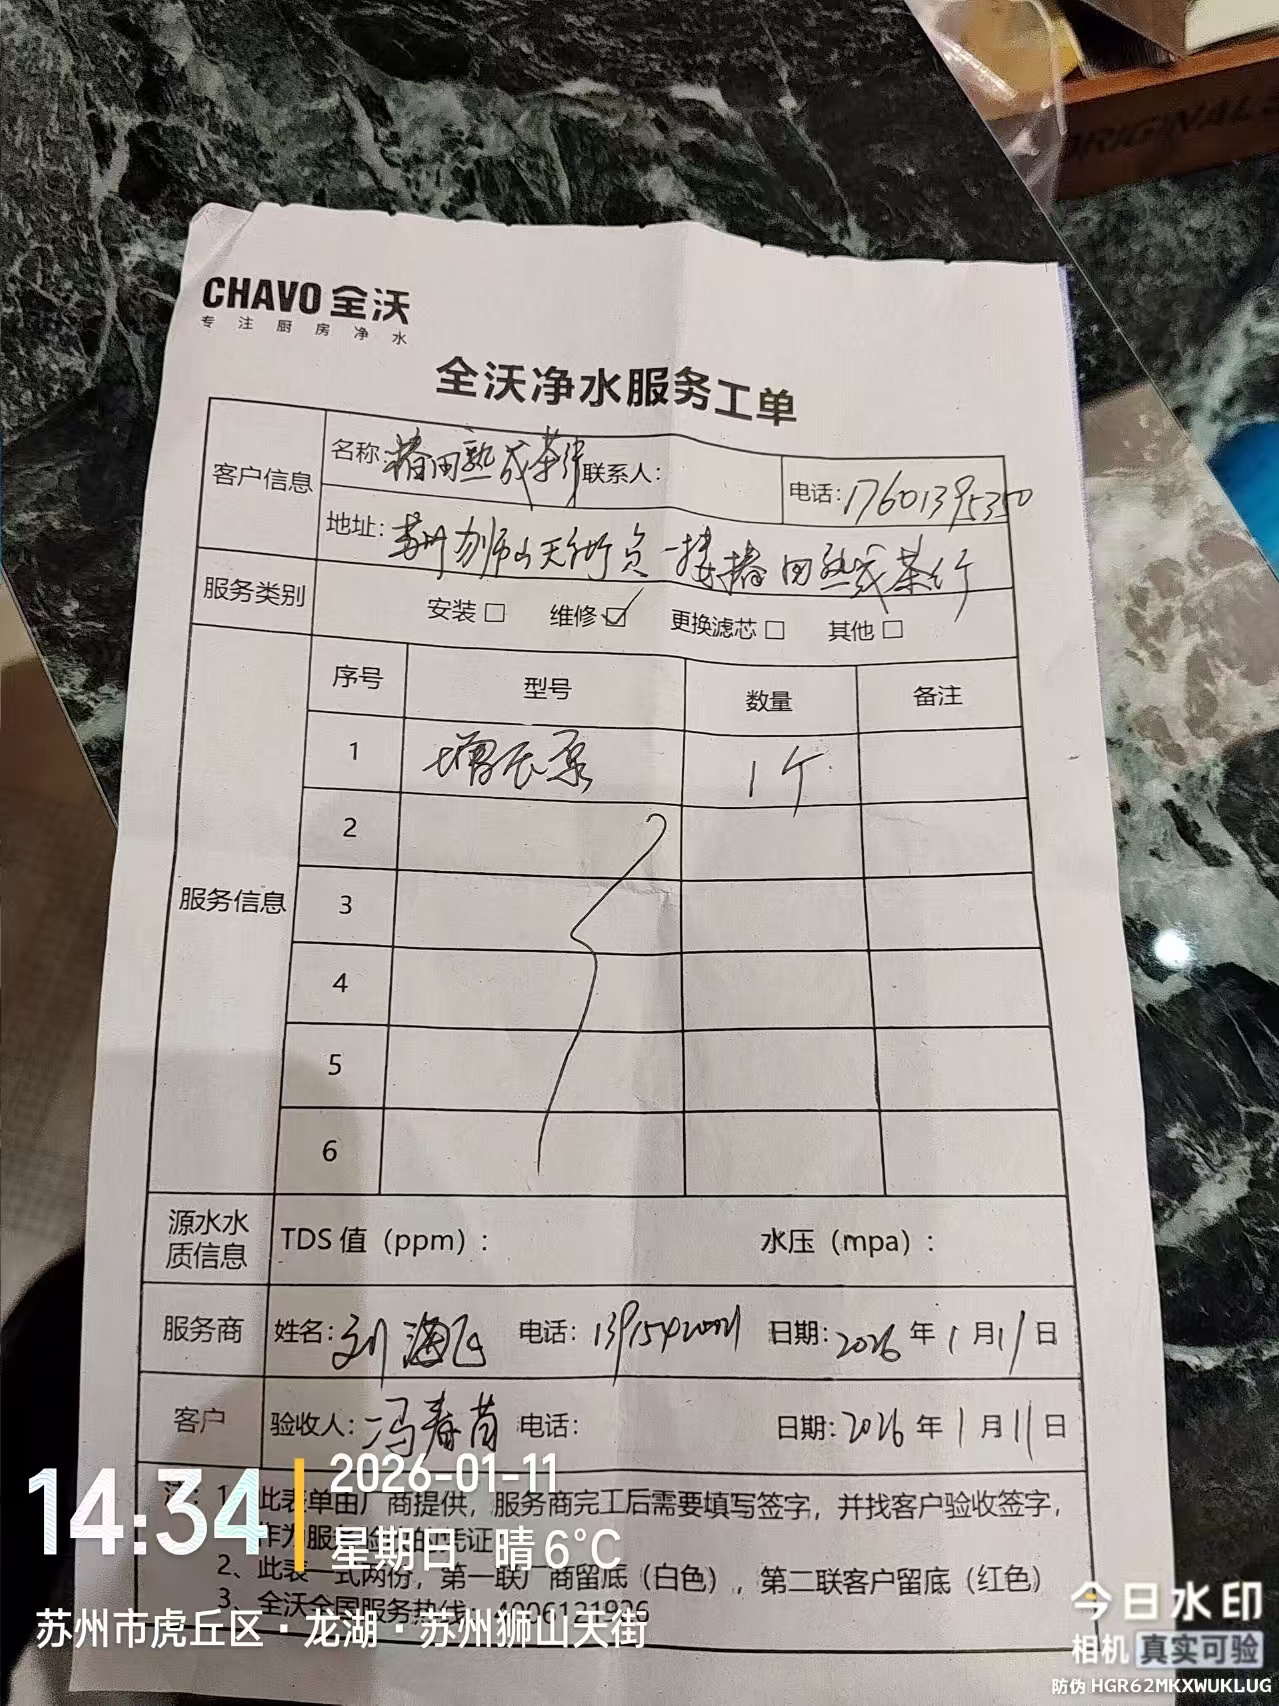 ORIGINAL
CHAVO 全沃
专注厨房净水
全沃净水服务工单
客户信息
名称: 椿田熟成茶行 联系人: 电话: 17601395350
地址: 苏州狮山天街负一楼椿田熟成茶行
服务类别 安装 维修 更换滤芯 其他
服务信息
序号 型号 数量 备注
1 增压泵 1个
2
3
4
5
6
源水水质信息 TDS 值（ppm）: 水压（mpa）:
服务商 姓名: 刘海飞 电话: 日期: 2026 年 1 月 11 日
客户 验收人: 冯春苗 电话: 日期: 2026 年 1 月 11 日
注: 1、此表单由厂商提供，服务商完工后需要填写签字，并找客户验收签字，
作为服务的凭证
2、此表一式两份，第一联厂商留底（白色），第二联客户留底（红色）
3、全沃全国服务热线: 4006121926
14:34
2026-01-11
星期日 晴 6°C
苏州市虎丘区·龙湖·苏州狮山天街
今日水印
相机 真实可验
防伪 HGR62MKXWUKLUG